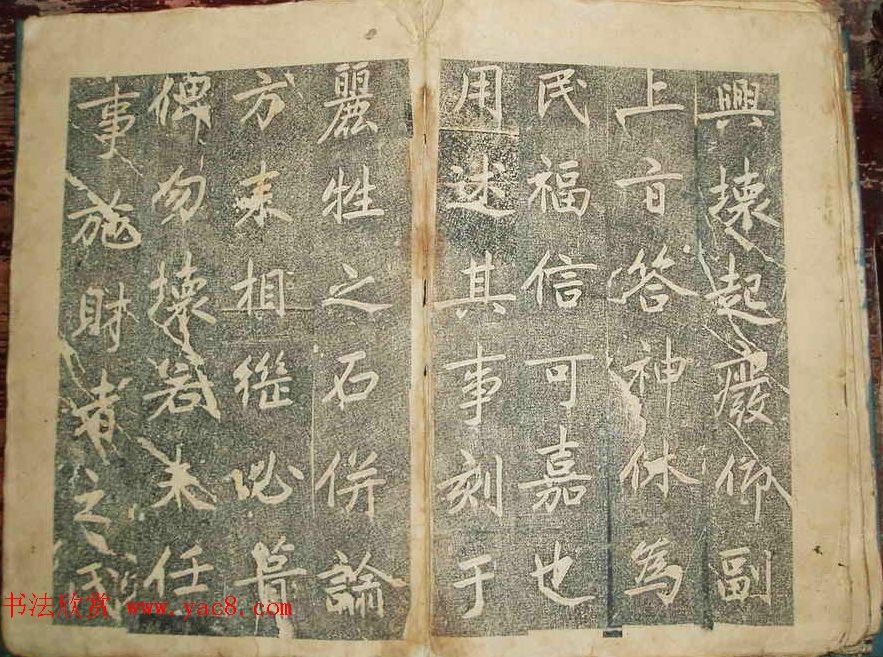 興壊起癈仰副
上旨答神休為
民福信可嘉也
用述其事刻于
麗牲之石併諭
方来相繼必葺
俾勿壊若夫任
事施財者之氏
书法欣赏 www.yac8.com